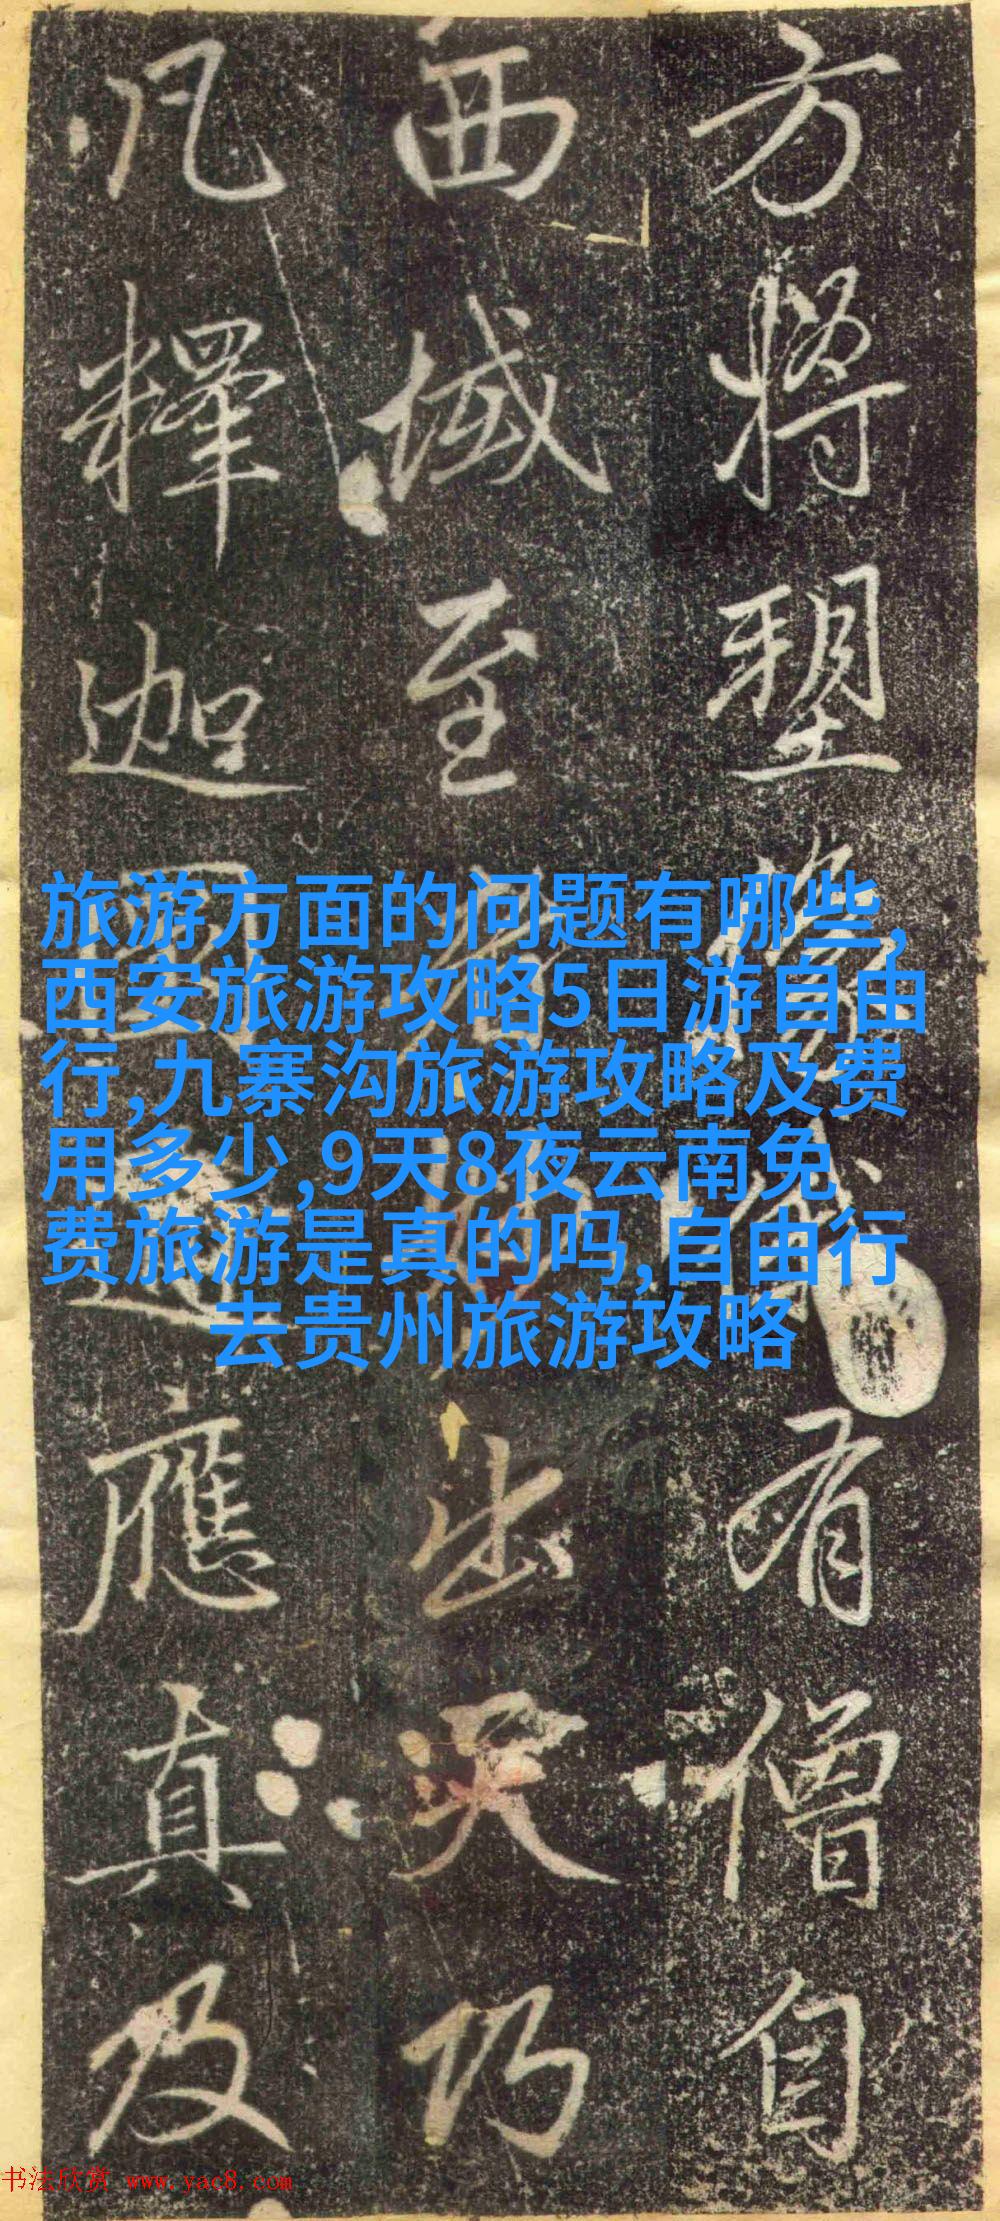 方將塑像有僧自
西域至出乃
凡釋迦應真及
旅游方面的问题有哪些,
西安旅游攻略5日游自由
行,九寨沟旅游攻略及费
用多少,9天8夜云南免
费旅游是真的吗,自由行
去贵州旅游攻略
书法欣赏 www.yac8.com